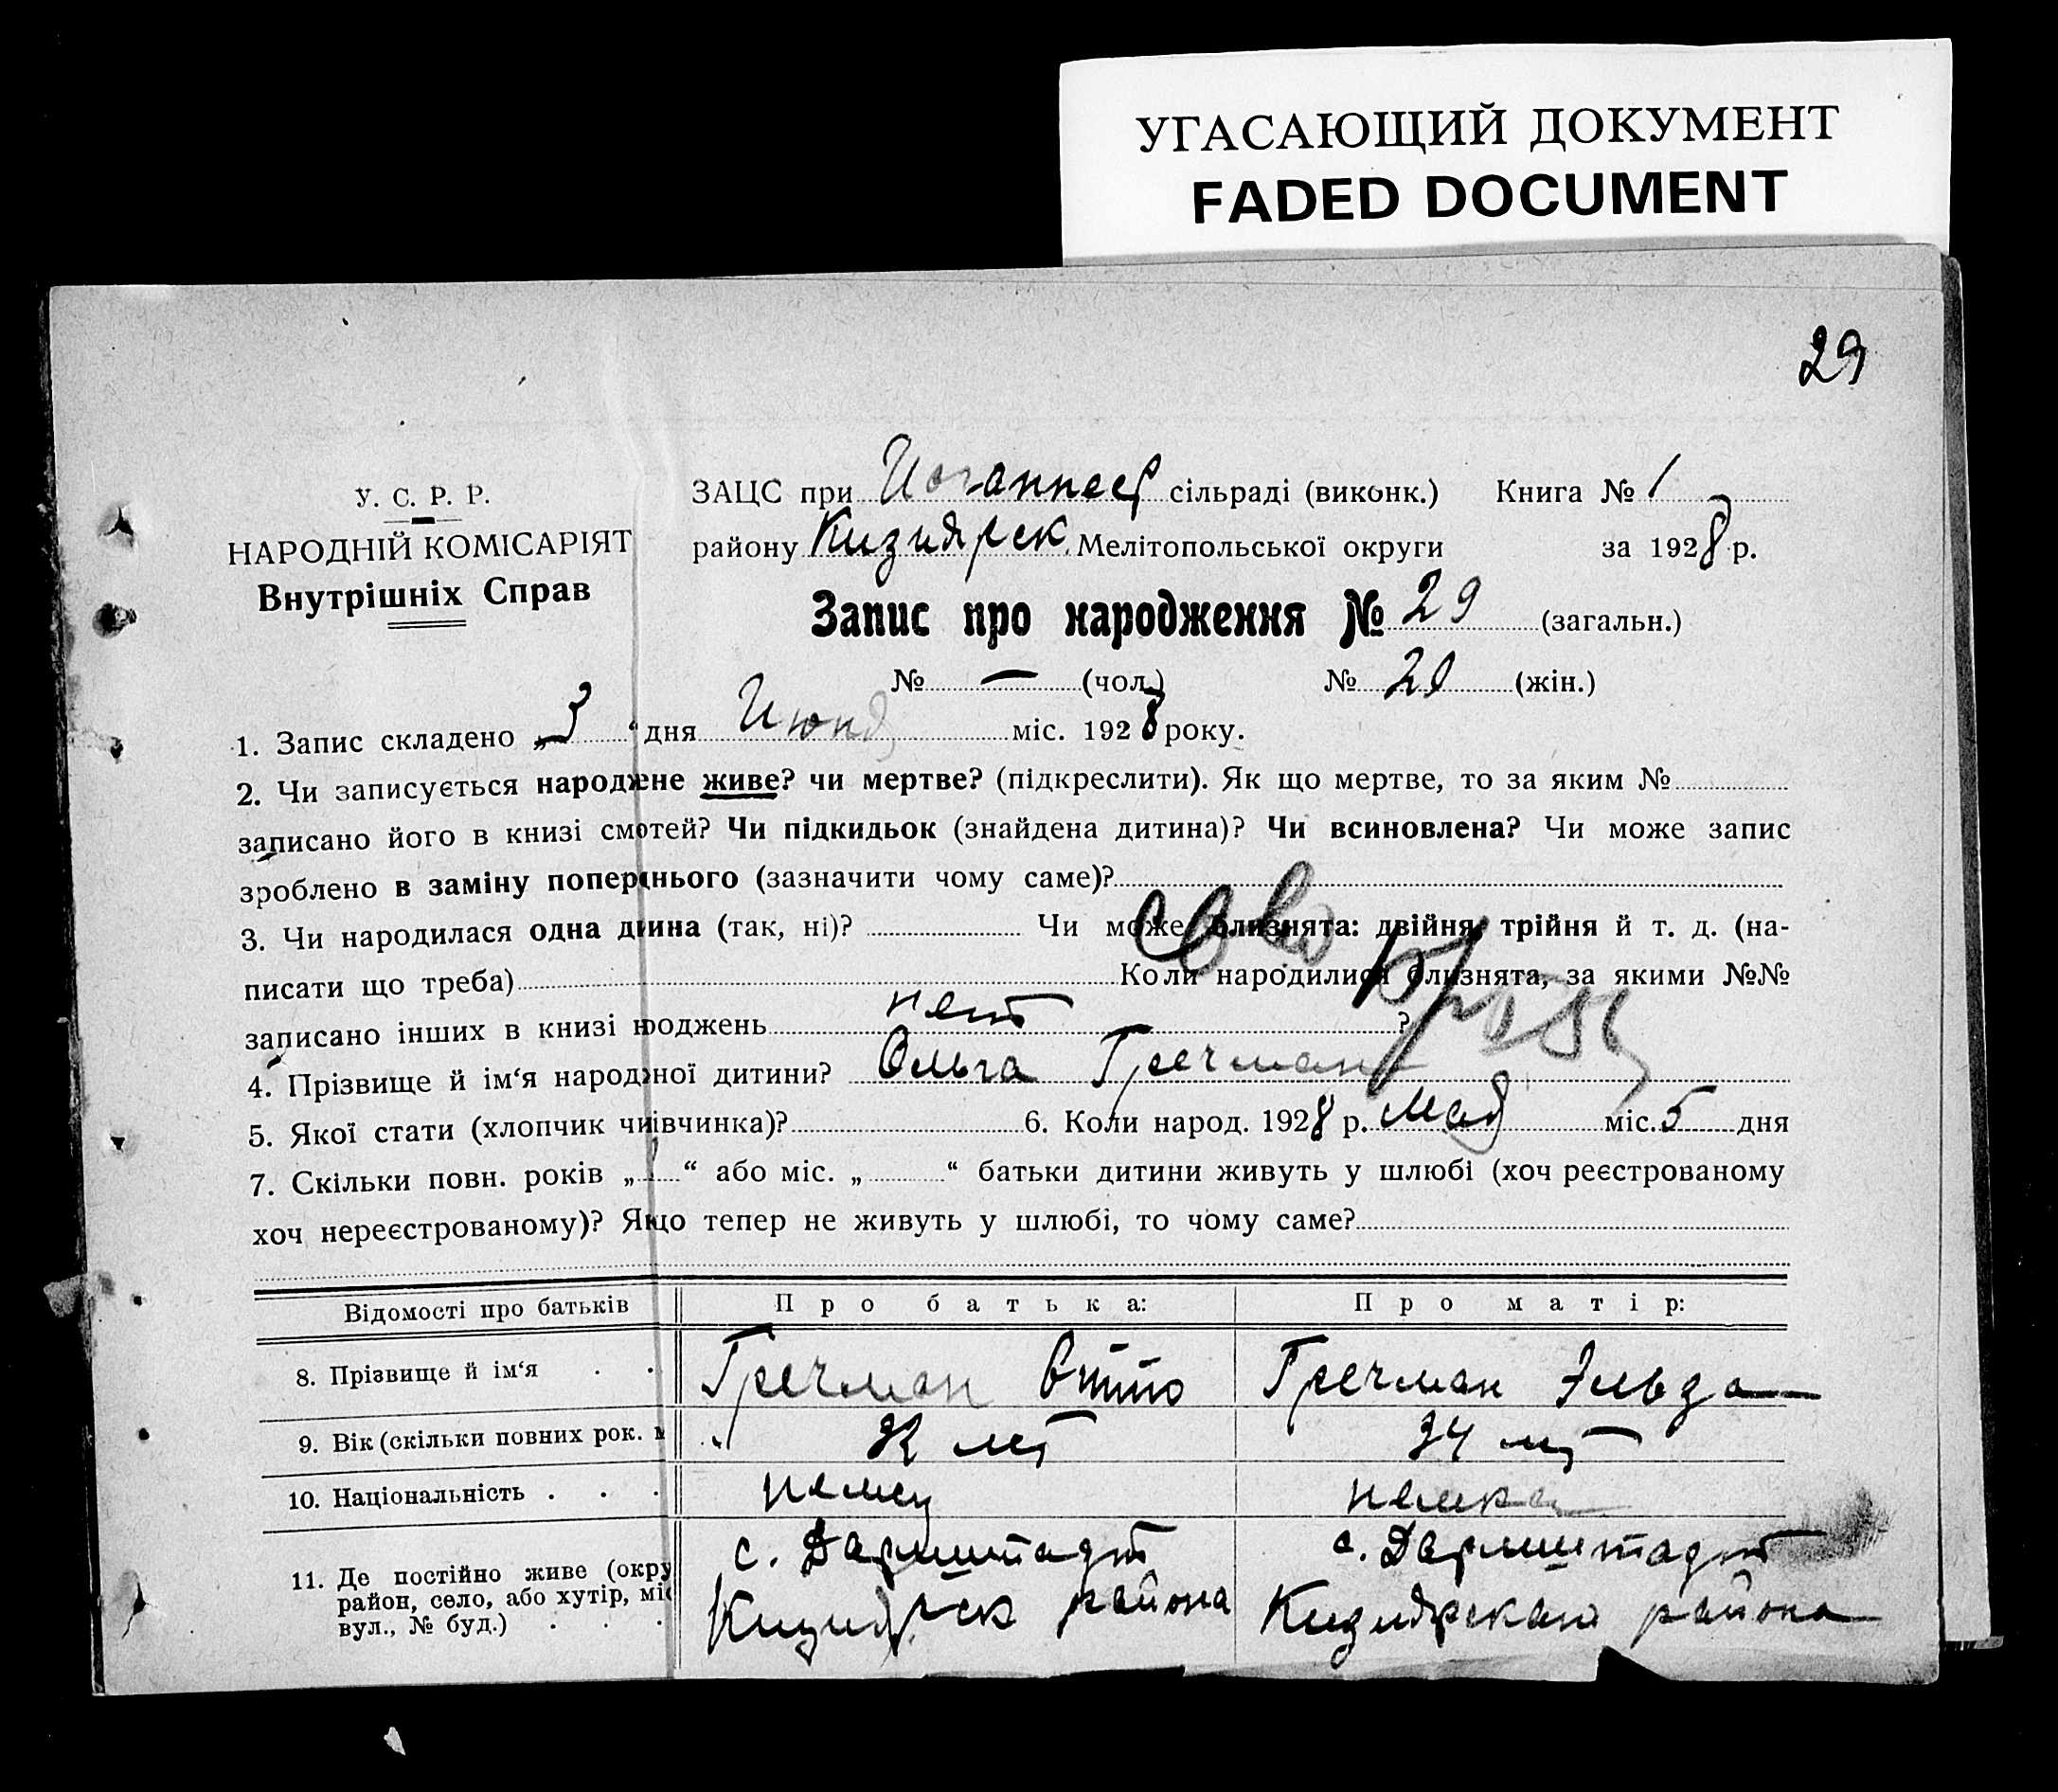 УГАСАЮЩИЙ ДОКУМЕНТ
FADED DOCUMENT
29
У. С. Р. Р.
НАРОДНІЙ КОМІСАРІЯТ
Внутрішніх Справ
ЗАЦС при Иоганнес сільраді (виконк.) Книга № 1
району Кизиярск. Мелітопольської округи за 1928 р.
Запис про народження № 29 (загальн.)
№ — (чол.) № 20 (жін.)
1. Запис складено „3“ дня Июня міс. 1928 року.
2. Чи записується народжене живе? чи мертве? (підкреслити). Як що мертве, то за яким №
записано його в книзі смртей? Чи підкидьок (знайдена дитина)? Чи всиновлена? Чи може запис
зроблено в заміну поперєнього (зазначити чому саме)?
3. Чи народилася одна дина (так, ні)? Чи може близнята: двійня, трійня й т. д. (на-
писати що треба) Коли народилися близнята, за якими №№
записано інших в книзі нроджень нет ?
4. Прізвище й ім‘я народжної дитини? Ольга Гречман
5. Якої стати (хлопчик чиівчинка)? 6. Коли народ. 1928 р. Мая міс. 5 дня
7. Скільки повн. років „1“ або міс. „ “ батьки дитини живуть у шлюбі (хоч реєстрованому
хоч нереєстрованому)? Якщо тепер не живуть у шлюбі, то чому саме?
Відомості про батьків Про батька: Про матір:
8. Прізвище й ім‘я . . Гречман Отто Гречман Эльза
9. Вік (скільки повних рок. 32 лет 24 лет
10. Національність . . . немец немка
11. Де постійно живе (окру с. Дармштадт с. Дармштадт
район, село, або хутір, міс Кизиярск района Кизиярскаго района
вул., № буд.) . . .